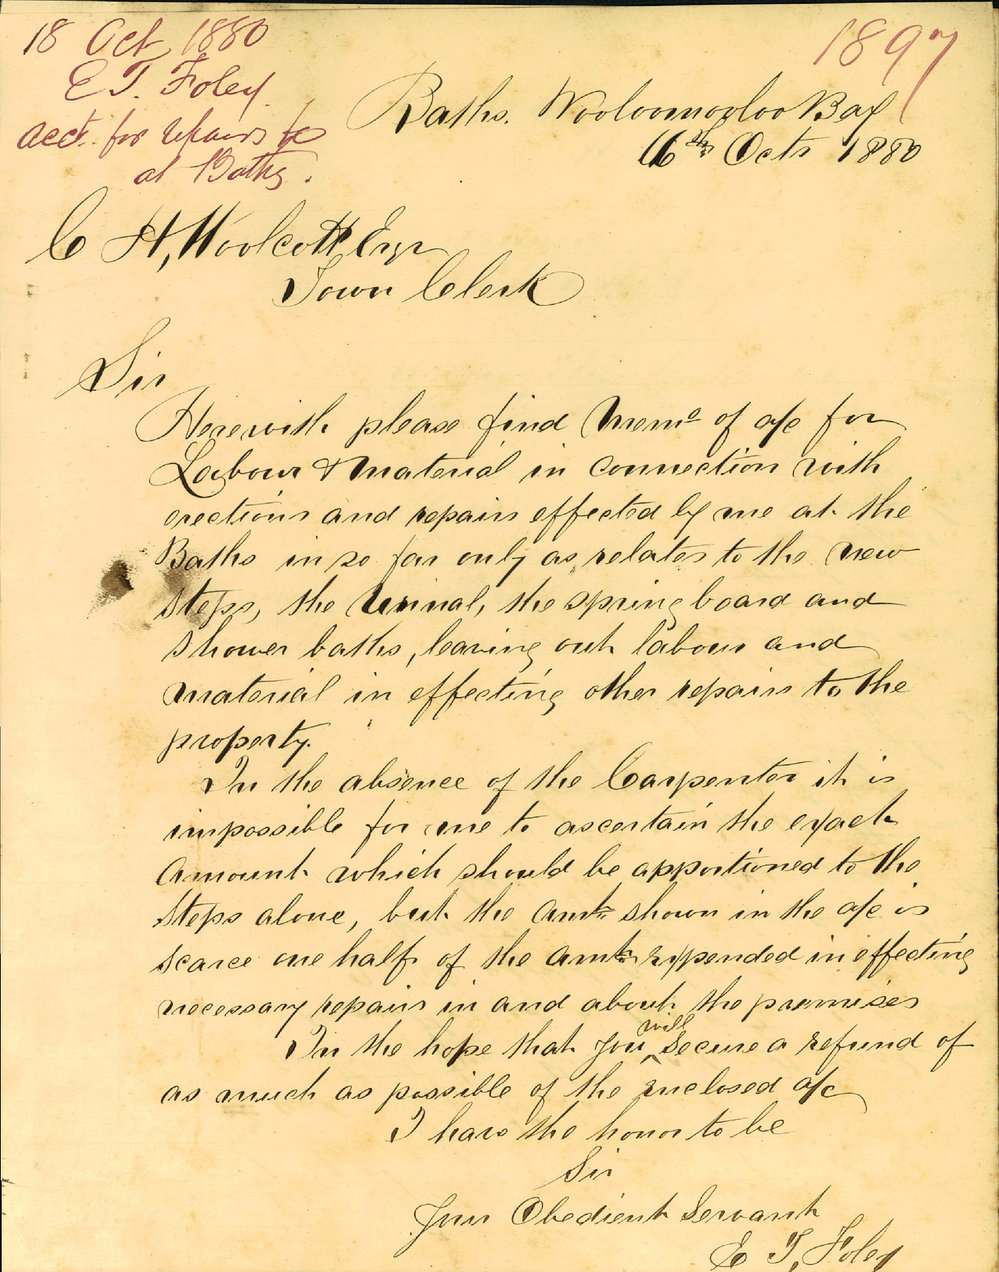 18 Oct 1880
E T. Foley
acct. for repairs &c
at Baths.
1897
Baths. Wooloomooloo Bay
16th Octr 1880
C H, Woolcott Esqr
Town Clerk
Sir
Herewith please find Memo of a/c for
Labour & material in connection with
erections and repairs effected by me at the
Baths in so far only as relates to the new
steps, the Urinal, the spring board and
shower baths, leaving out labour and
material in effecting other repairs to the
property.
In the absence of the Carpenter it is
impossible for me to ascertain the exact
amount which should be apportioned to the
steps alone, but the amt shown in the a/c is
scarce one half of the amt expended in effecting
necessary repairs in and about the premises
In the hope that you will secure a refund of
as much as possible of the enclosed a/c
I have the honor to be
Sir
Your Obedient Servant
E T, Foley